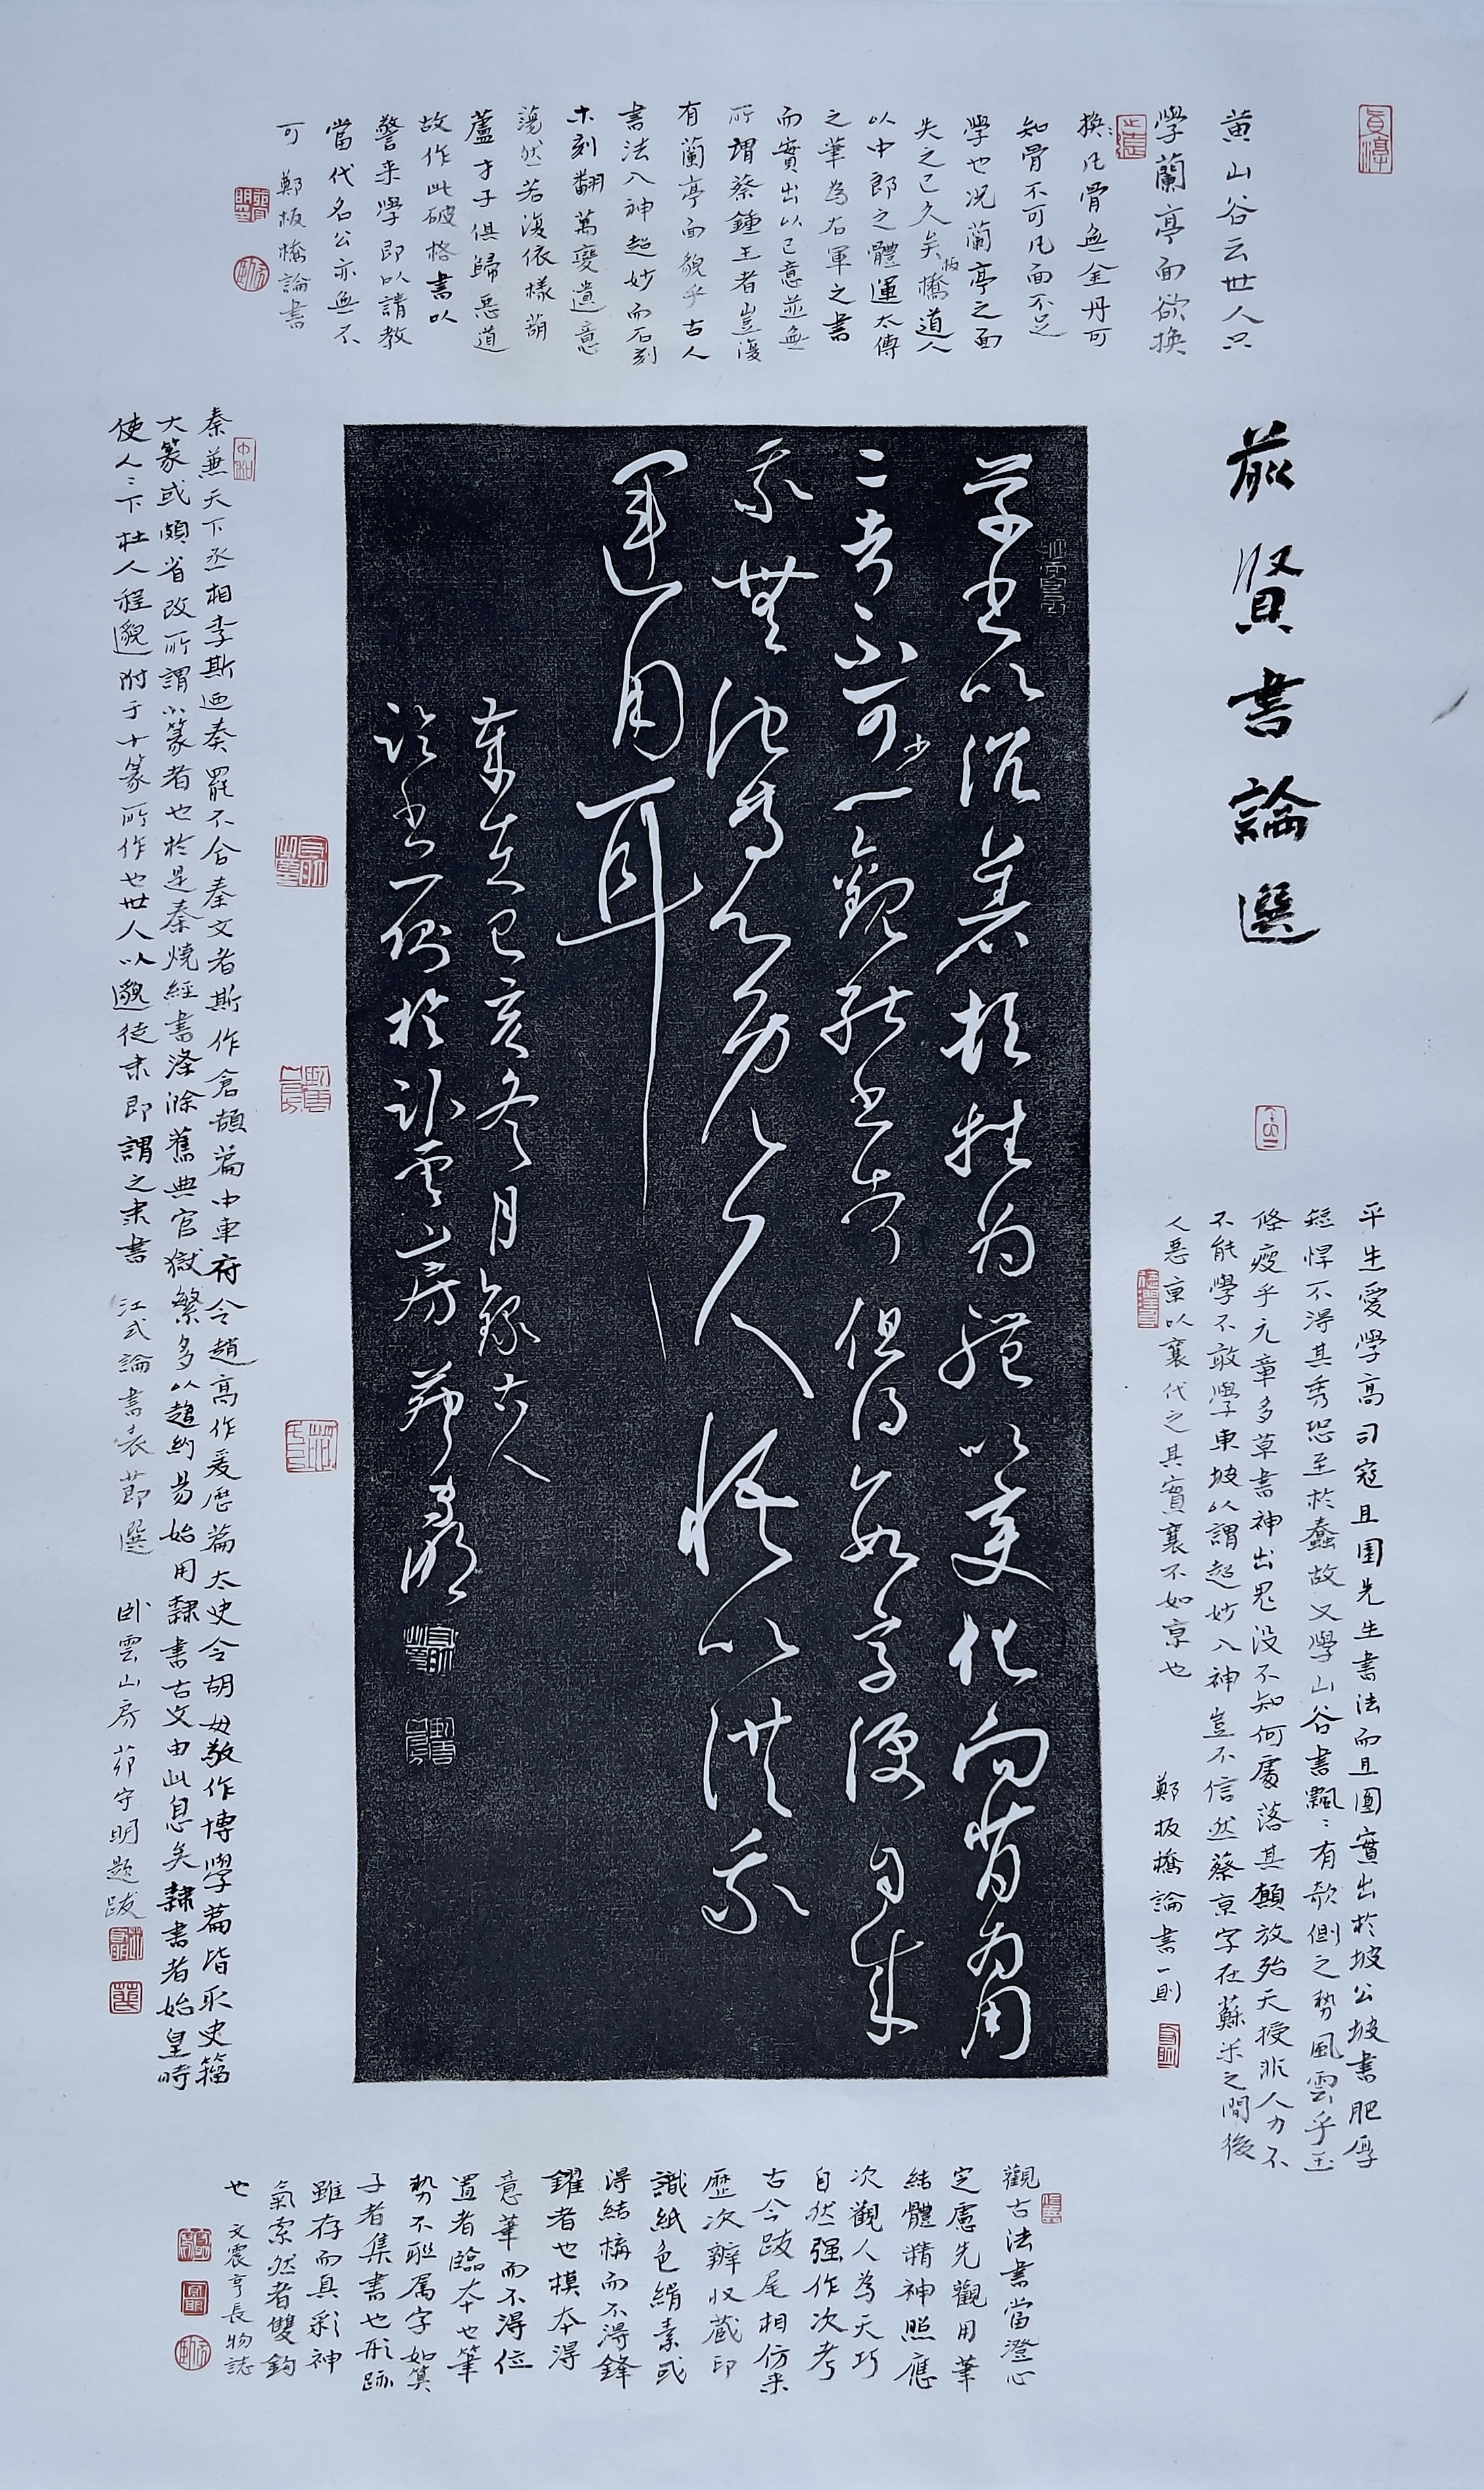 前賢書論選
黄山谷云世人只
學蘭亭面欲換
換凡骨無金丹可
知骨不可凡面不足
學也況蘭亭之面
失之已久矣板橋道人
以中郎之體運太傅
之筆為右軍之書
而實出以己意並無
所謂蔡鍾王者豈復
有蘭亭面貌乎古人
書法入神超妙而石刻
木刻翻萬變遺意
蕩然若復依樣葫
蘆才子俱歸惡道
故作此破格書以
警來學即以請教
當代名公亦無不
可 鄭板橋論書
平生愛學高司寇且園先生書法而且園實出於坡公坡書肥厚
短悍不得其秀恐至於蠢故又學山谷書飄飄有欹側之勢風雲乎玉
條瘦乎元章多草書神出鬼没不知何處落其顛放殆天授非人力不
不能學不敢學東坡以謂超妙入神豈不信然蔡京字在蘇米之間後
人惡京以襄代之其實襄不如京也 鄭板橋論書一則
草書以沉着頓挫為體以变化向背為用
二者不可少一觀能書者但得數字便自生
不無池專之易之人
運用耳
歲在己亥冬月錄古人
論書一則於卧雲山房 守明
秦兼天下丞相李斯迺奏罷不合秦文者斯作倉頡篇中車府令趙高作爰歷篇太史令胡毋敬作博學篇皆取史籀
大篆或頗省改所謂小篆者也於是秦燒經書滌除舊典官獄繁多以趨約易始用隸書古文由此息矣隸書者始皇時
使人下杜人程邈附于小篆所作也世人以邈徒隶即謂之隶書 江式論書表節選 卧雲山房茆守明題跋
觀古法書當澄心
定慮先觀用筆
結體精神照應
次觀人為天巧
自然强作次考
古今跋尾相傍來
歷次辨收藏印
識紙色絹素或
得結構而不得鋒
鋩者也模本得
意筆而不得位
置者臨本也筆
勢不聯属字如算
子者集書也形跡
雖存而真彩神
氣索然者雙鉤
也 文震亨長物誌